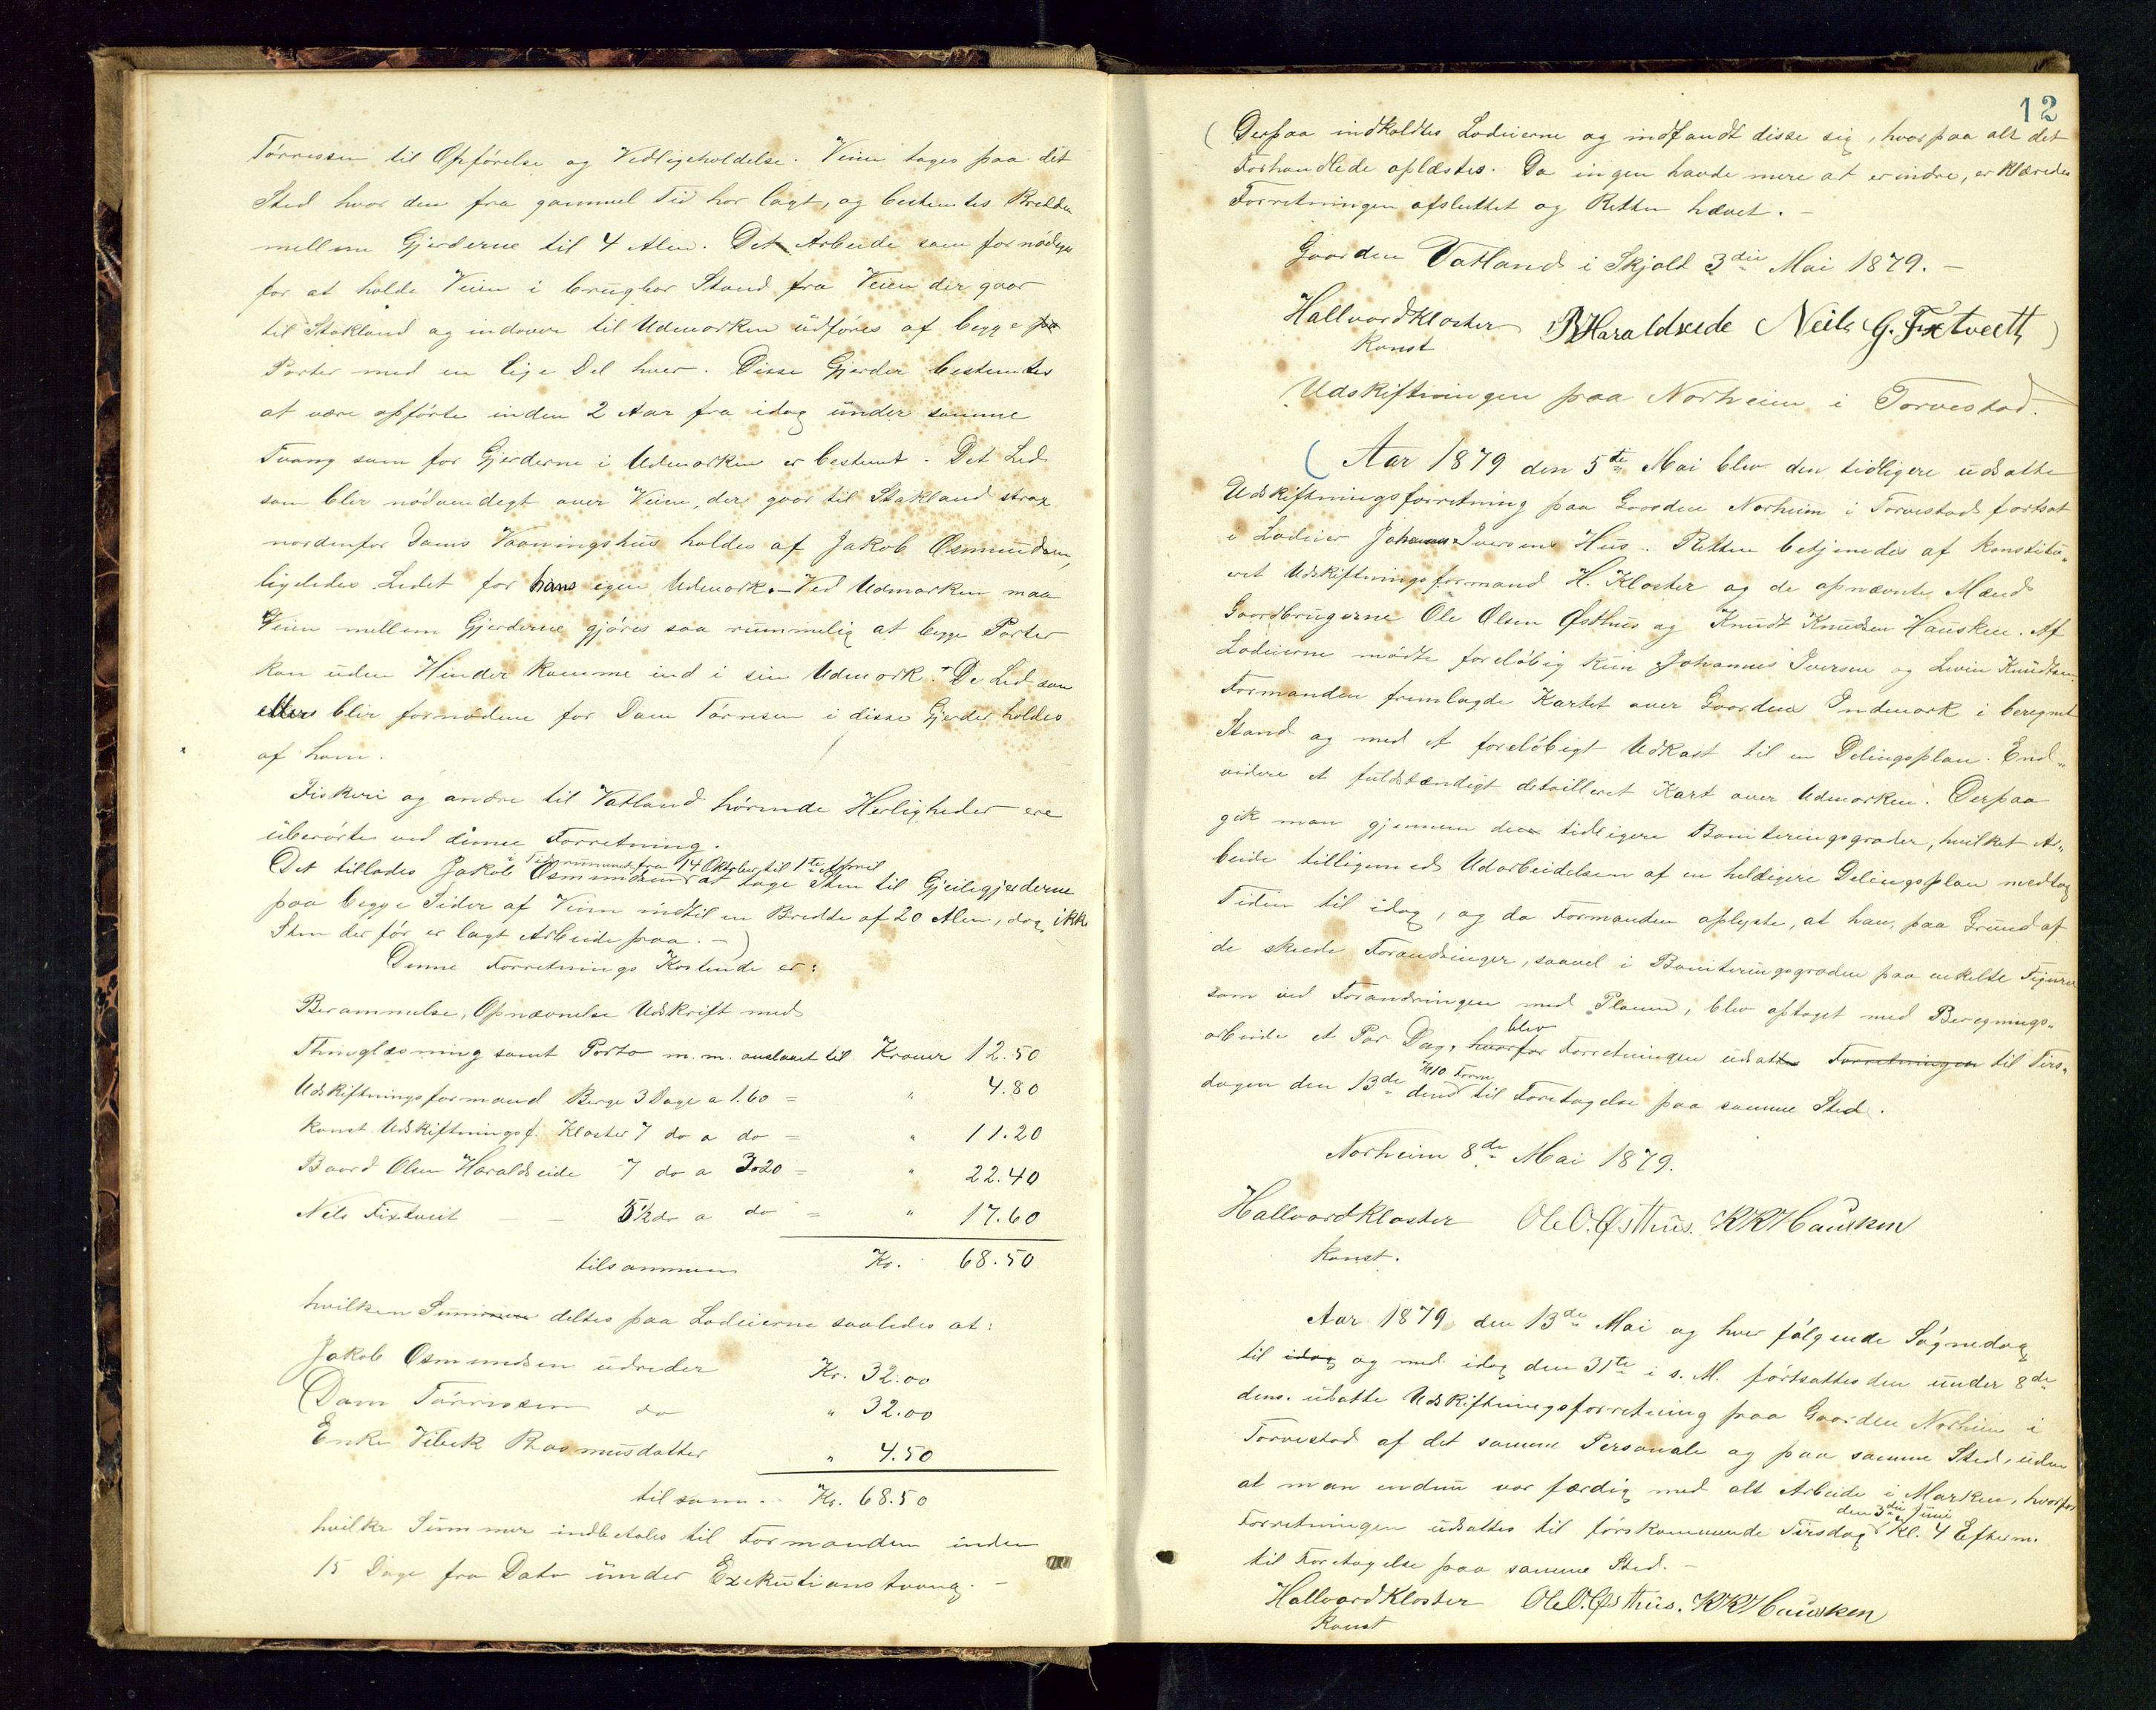 Tørresen til Opførelse og Vedligeholdelse. Veien tages paa det
Sted hvor den fra gammel Tid har lagt, og bestemtes Bredden
mellem Gjerderne til 4 Alen. Det Arbeide som fornødiges
for at holde Veien i brugbar Stand fra Veien der gaar
til Stakland og indover til Udmarken udføres af begge
Parter med en lige Del hver. Disse Gjerder bestemtes
at være opførte inden 2 Aar fra idag under samme
Tvang som for Gjerderne i Udmarken er bestemt. Det Led
som blir nødvendigt over Veien, der gaar til Stakland strax
nordenfor Dams Vaaningshus holdes af Jakob Osmundsen,
ligeledes Ledet for hans egen Udmark. – Ved Udmarken maa
Veien mellem Gjerderne gjøres saa rummelig at begge Parter
kan uden Hinder komme ind i sin Udmark. De Led som
ellers blir fornødne for Dam Tørresen i disse Gjerder holdes
af ham.
Fiskeri og andre til Vatland hørende Herligheder ere
uberørte ved denne Forretning.
i Tidsrummet fra 14 Oktober til 1te April
Det tillades Jakob Osmundsen at tage Sten til Gjeilegjerderne
paa begge Sider af Veien indtil en Bredde af 20 Alen, dog ikke
Sten der før er lagt Arbeide paa. –)
Denne Forretnings Kostende er:
Berammelse, Opnævnelse Udskrift med
Thinglæsning samt Porto m.m. anslaaet til Kroner 12.50
Udskiftningsformand Berge 3 Dage a 1.60 = " 4.80
Konst. Udskiftningsf. Kloster 7 do a do = " 11.20
Baard Olsen Haraldseide 7 do a 3.20 = " 22.40
Nels Fixtveit – – 5½ do a do = " 17.60
tilsammen Kr. 68.50
hvilken Summen deltes paa Lodeierne saaledes at:
Jakob Osmundsen udreder Kr. 32.00
Dam Tørresen do " 32.00
Enke Vibeik Rasmusdatter " 4.50
tilsam. Kr. 68.50
hvilke Summer indbetales til Formanden inden
15 Dage fra Dato under Exekutionstvang. –
12
(Derpaa indkaldtes Lodeierne og indfandt disse sig, hvorpaa alt det
Forhandlede oplæstes. Da ingen havde mere at erindre, erklæredes
Forretningen afsluttet og Retten hævet. –
Gaarden Vatland i Skjold 3die Mai 1879. –
Hallvard Kloster BHaraldseide Neils G. Fixtveett)
Konst
Udskiftningen paa Norheim i Torvestad.
(Aar 1879 den 5te Mai blev den tidligere udsatte
Udskiftningsforretning paa Gaarden Norheim i Torvestad fortsat
i Lodeier Johannes Iversens Hus. Retten betjenedes af konstitu-
eret Udskiftningsformand H. Kloster og de opnævnte Mænd
Gaardbrugerne Ole Olsen Østhus og Knudt Knudsen Hausken. Af
Lodeierne mødte foreløbig kun Johannes Iversen og Levin Knudtsen.
Formanden fremlagde Kartet over Gaardens Indmark i beregnet
Stand og med et foreløbigt Udkast til en Delingsplan. End-
videre et fuldstændigt detailleret Kart over Udmarken. Derpaa
gik man gjennem den tidligere Boniteringsgrader, hvilket Ar-
beide tilligemed Udarbeidelsen af en heldigere Delingsplan medtog
Tiden til idag, og da Formanden oplyste, at han, paa Grund af
de skeede Forandringer, saavel i Boniteringsgraden paa enkelte Figurer
som ved Forandringen med Planen, blev optaget med Beregnings-
blev
arbeide et Par Dage, hvorfor Forretningen udsattes Forretningen til Tirs-
Kl 10 Form
dagen den 13de dens til Foretagelse paa samme Sted.
Norheim 8de Mai 1879.
Hallvard Kloster Ole O. Østhus. KKHausken
konst.
Aar 1879 den 13de Mai og hver følgende Søgnedag
til idag og med idag den 31te i s. M. fortsattes den under 8de
dens. udsatte Udskiftningsforretning paa Gaarden Norheim i
Torvestad af det samme Personale og paa samme Sted, uden
at man endnu var færdig med alt Arbeide i Marken, hvorfor
den 3die Juni
Forretningen udsattes til førstkommende Tirsdag Kl. 4 Efterm.
til Foretagelse paa samme Sted. –
Hallvard Kloster Ole O. Østhus. KKHausken
Konst